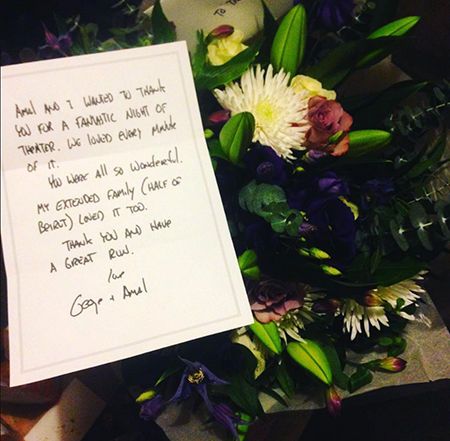 TO THE
AMAL AND I WANTED TO THANK
YOU FOR A FANTASTIC NIGHT OF
THEATER. WE LOVED EVERY MINUTE
OF IT.
YOU WERE ALL SO WONDERFUL.
MY EXTENDED FAMILY (HALF OF
BEIRUT) LOVED IT TOO.
THANK YOU AND HAVE
A GREAT RUN.
Love
George + Amal